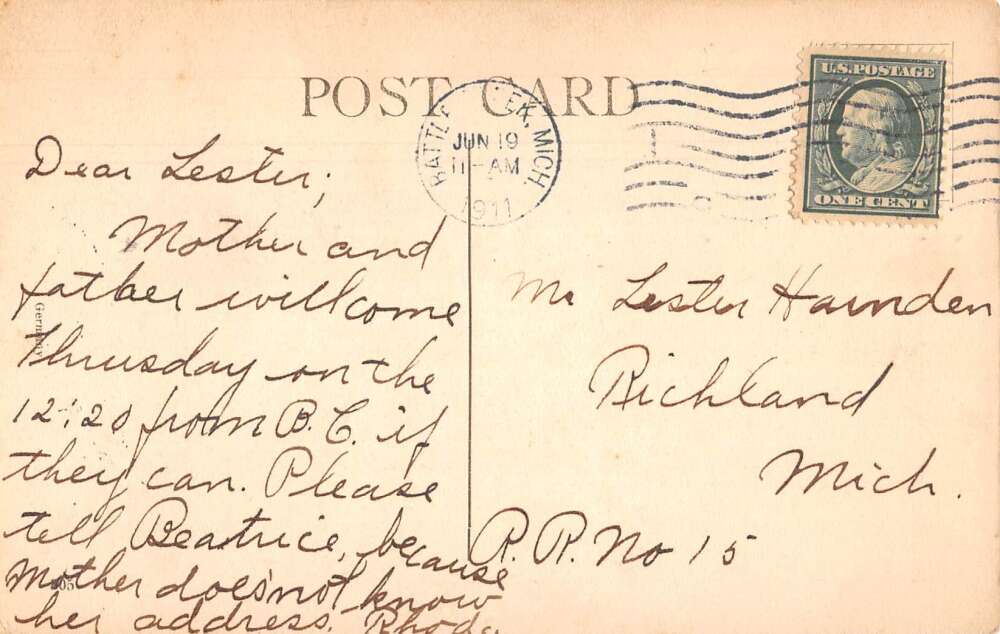 POST CARD
BATTLE CREEK, MICH.
JUN 19
11-AM
1911
U.S. POSTAGE
ONE CENT
Dear Lester;
Mother and
father will come
Thrusday on the
12:20 from B.C. if
they can. Please
tell Beatrice, because
Mother does'not know
her address. Rhoda
Germany
Mr Lester Harnden
Richland
Mich.
R. R. No 15